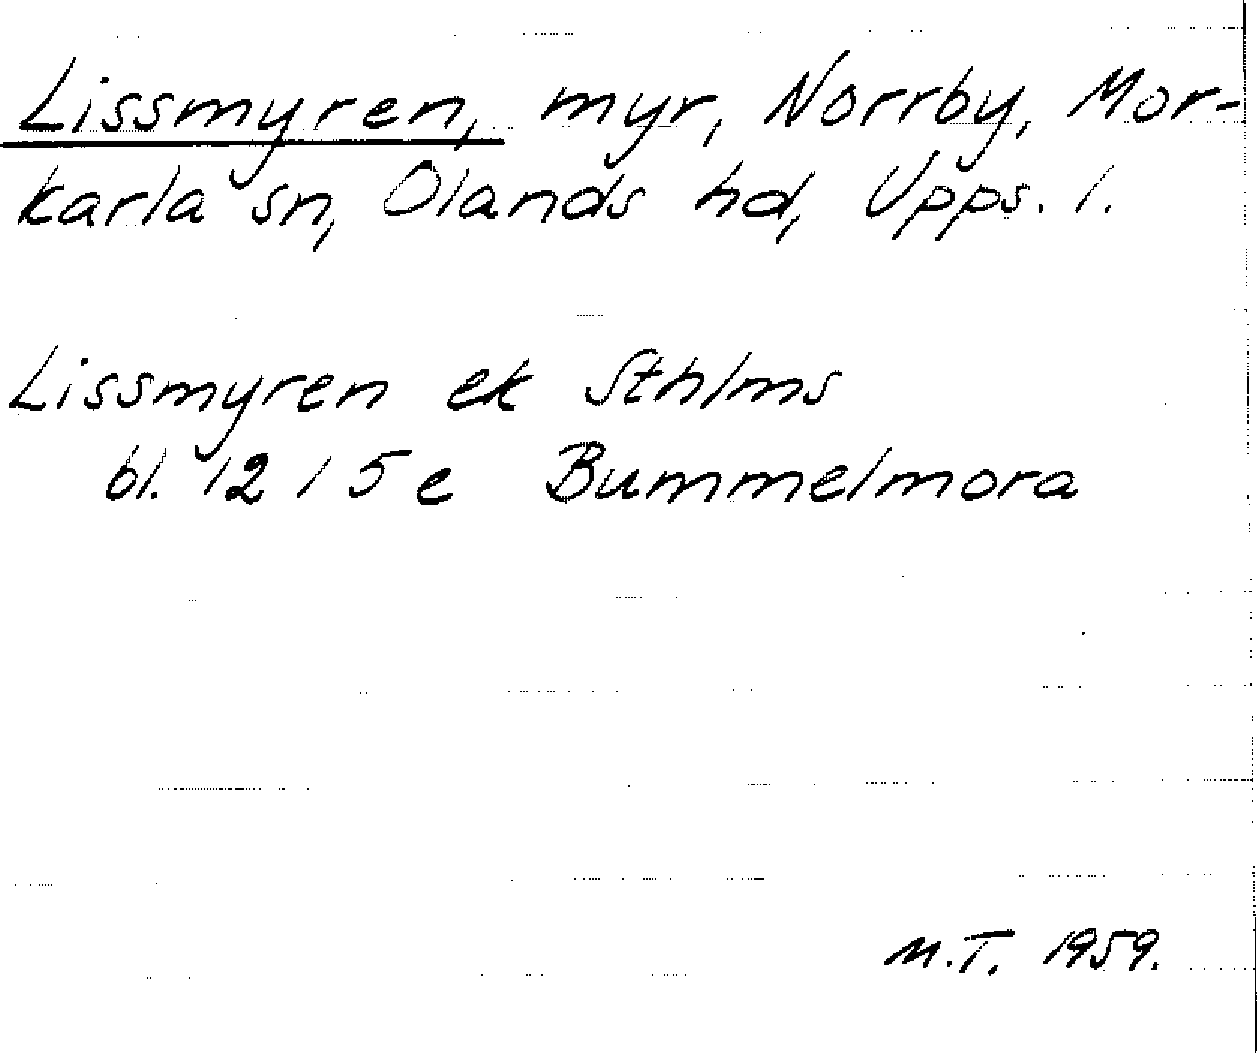 Lissmyren, myr, Norrby, Mor-
karla sn, Olands hd, Upps. l.
Lissmyren ek Sthlms
bl. 12 I 5 e Bummelmora
M.T. 1959.